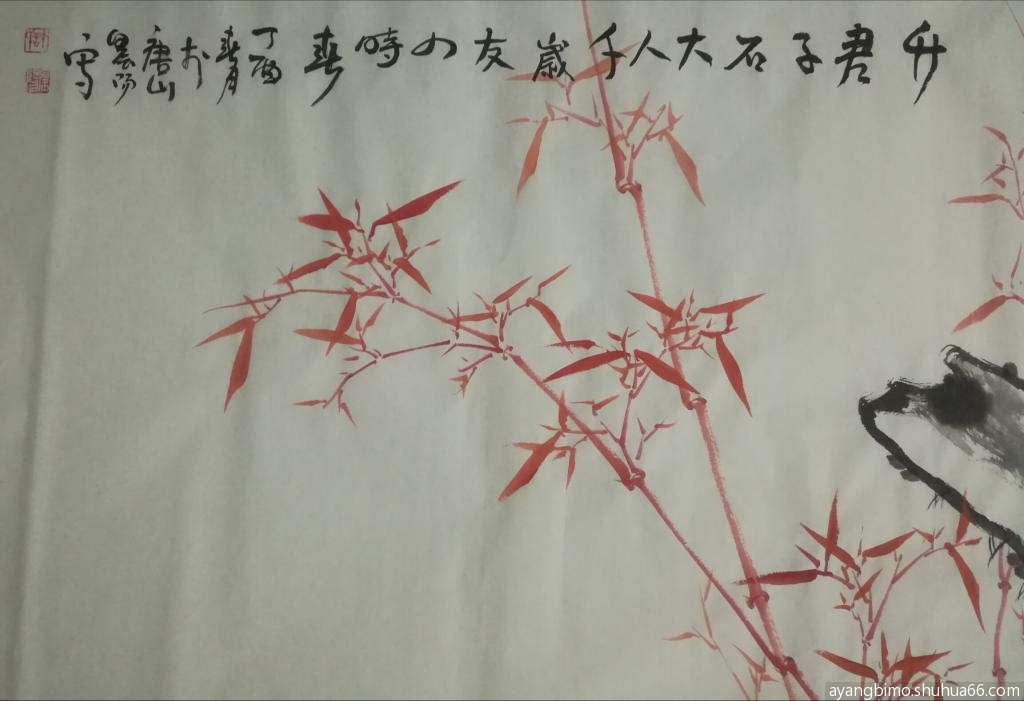 竹君子石大人千歲友四時春
丁酉
春月
於
唐山
阳
写
ayangbimo.shuhua66.com